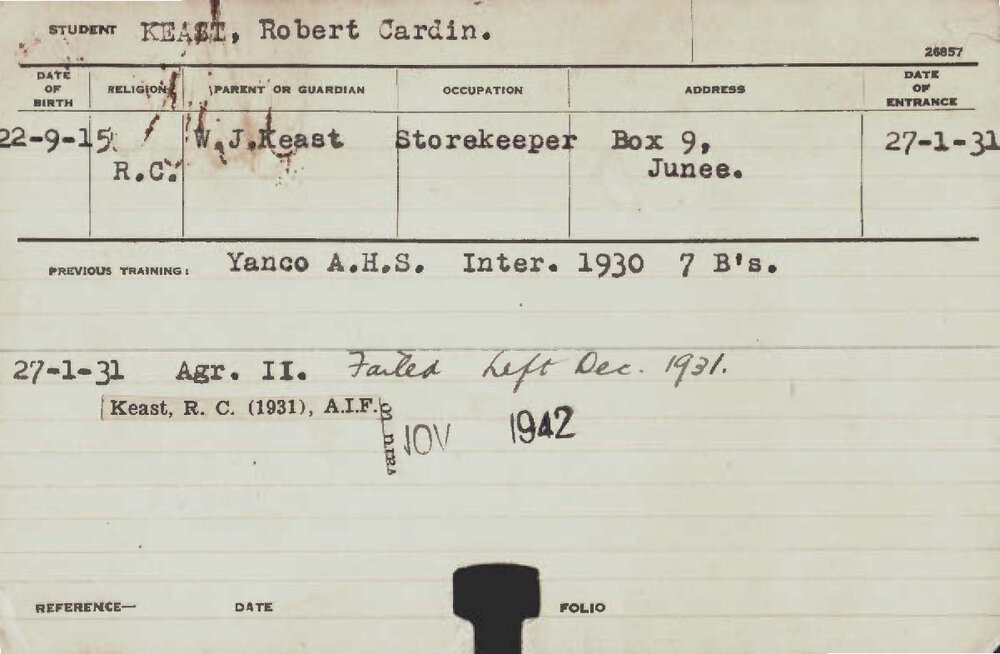 STUDENT KEAST, Robert Cardin.
26857
DATE OF BIRTH RELIGION PARENT OR GUARDIAN OCCUPATION ADDRESS DATE OF ENTRANCE
22-9-15 W.J.Keast Storekeeper Box 9, 27-1-31
R.C. Junee.
PREVIOUS TRAINING: Yanco A.H.S. Inter. 1930 7 B's.
27-1-31 Agr. II. Failed Left Dec. 1931.
Keast, R. C. (1931), A.I.F.
NOV 1942
REFERENCE— DATE FOLIO